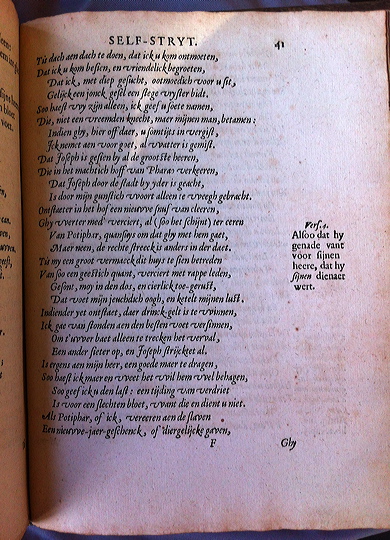 SELF-STRYT. 41
Tis dach aen dach te doen, dat ick u kom ontmoeten,
Dat ick u kom besien, en vriendelick begroeten,
Dat ick, met diep gesucht, ootmoedich voor u sit,
Gelijck een jonck gesel een slege vryster bidt.
Soo haest wy zijn alleen, ick geef u soete namen,
Die, niet een vreemden knecht, maer mijnen man, betamen:
Indien ghy, hier off daer, u somtijts in vergist,
Ick neemet aen voor goet, al watter is gemist.
Dat Joseph is gesien by al de grootste heeren,
Die in het machtich hoff van Pharao verkeeren,
Dat Joseph door de stadt by yder is geacht,
Is door mijn gunstich woort alleen te weegh gebracht.
Ontstaeter in het hof een nieuwe snuf van cleeren,
Ghy werter med' verciert, al (soo het schijnt) ter eeren
Van Potiphar, quansuys om dat ghy met hem gaet,
Maer neen, de rechte streeck is anders in der daet.
Tis my een groot vermaeck dit huys te sien betreden
Van soo een geestich quant, verciert met rappe leden,
Gesont, moy in den dos, en cierlick toe-gerust,
Dat voet mijn jeuchdich oogh, en ketelt mijnen lust.
Indiender yet ontstaet, daer drinck-gelt is te winnen,
Ick gae van stonden aen den besten voet versinnen,
Om t'uwer baet alleen te trecken het verval,
Een ander sieter op, en Joseph strijcktet al.
Is ergens aen mijn heer, een goede maer te dragen,
Soo haest ick maer en weet het wil hem wel behagen,
Soo geef ick u den last: een tijding van verdriet
Is voor een slechten bloet, want die en dient u niet.
Als Potiphar, of ick, vereeren aen de slaven
Een nieuwe-jaer-geschenck, of diergelijcke gaven,
F Ghy
Vers. 4.
Alsoo dat hy
genade vant
voor sijnen
heere, dat hy
sijnen dienaer
wert.